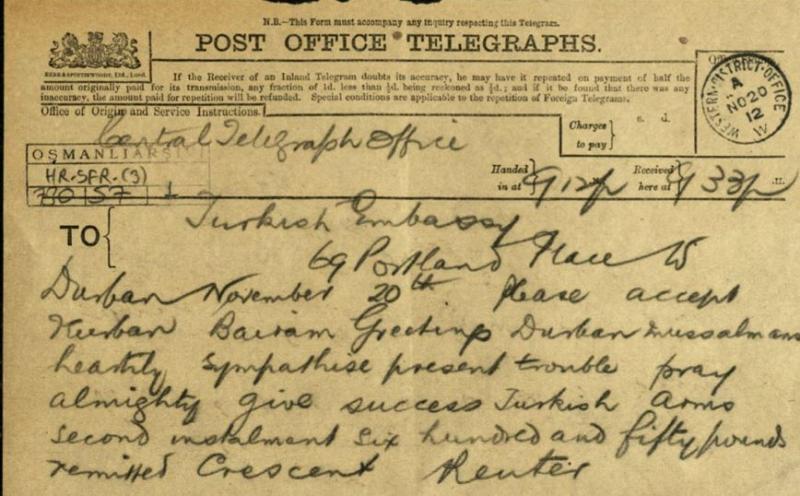 N.B.—This Form must accompany any inquiry respecting this Telegram.
POST OFFICE TELEGRAPHS.
If the Receiver of an Inland Telegram doubts its accuracy, he may have it repeated on payment of half the
amount originally paid for its transmission, any fraction of 1d. less than ½d. being reckoned as ½d.; and if it be found that there was any
inaccuracy, the amount paid for repetition will be refunded. Special conditions are applicable to the repetition of Foreign Telegrams.
Office of Origin and Service Instructions.
Central Telegraph Office
Charges to pay
s. d.
WESTERN·DISTRICT·OFFICE
A
NO 20
12
W
OSMANLI ARŞİ
HR-SFR-(3)
157
Handed in at 9 12 p
Received here at 9 33 p
TO
Turkish Embassy
69 Portland Place W
Durban November 20th Please accept
Kurban Bairam Greetings Durban mussalmans
heartily sympathise present trouble pray
almighty give success Turkish Arms
second instalment six hundred and fifty pounds
remitted Crescent Reuter